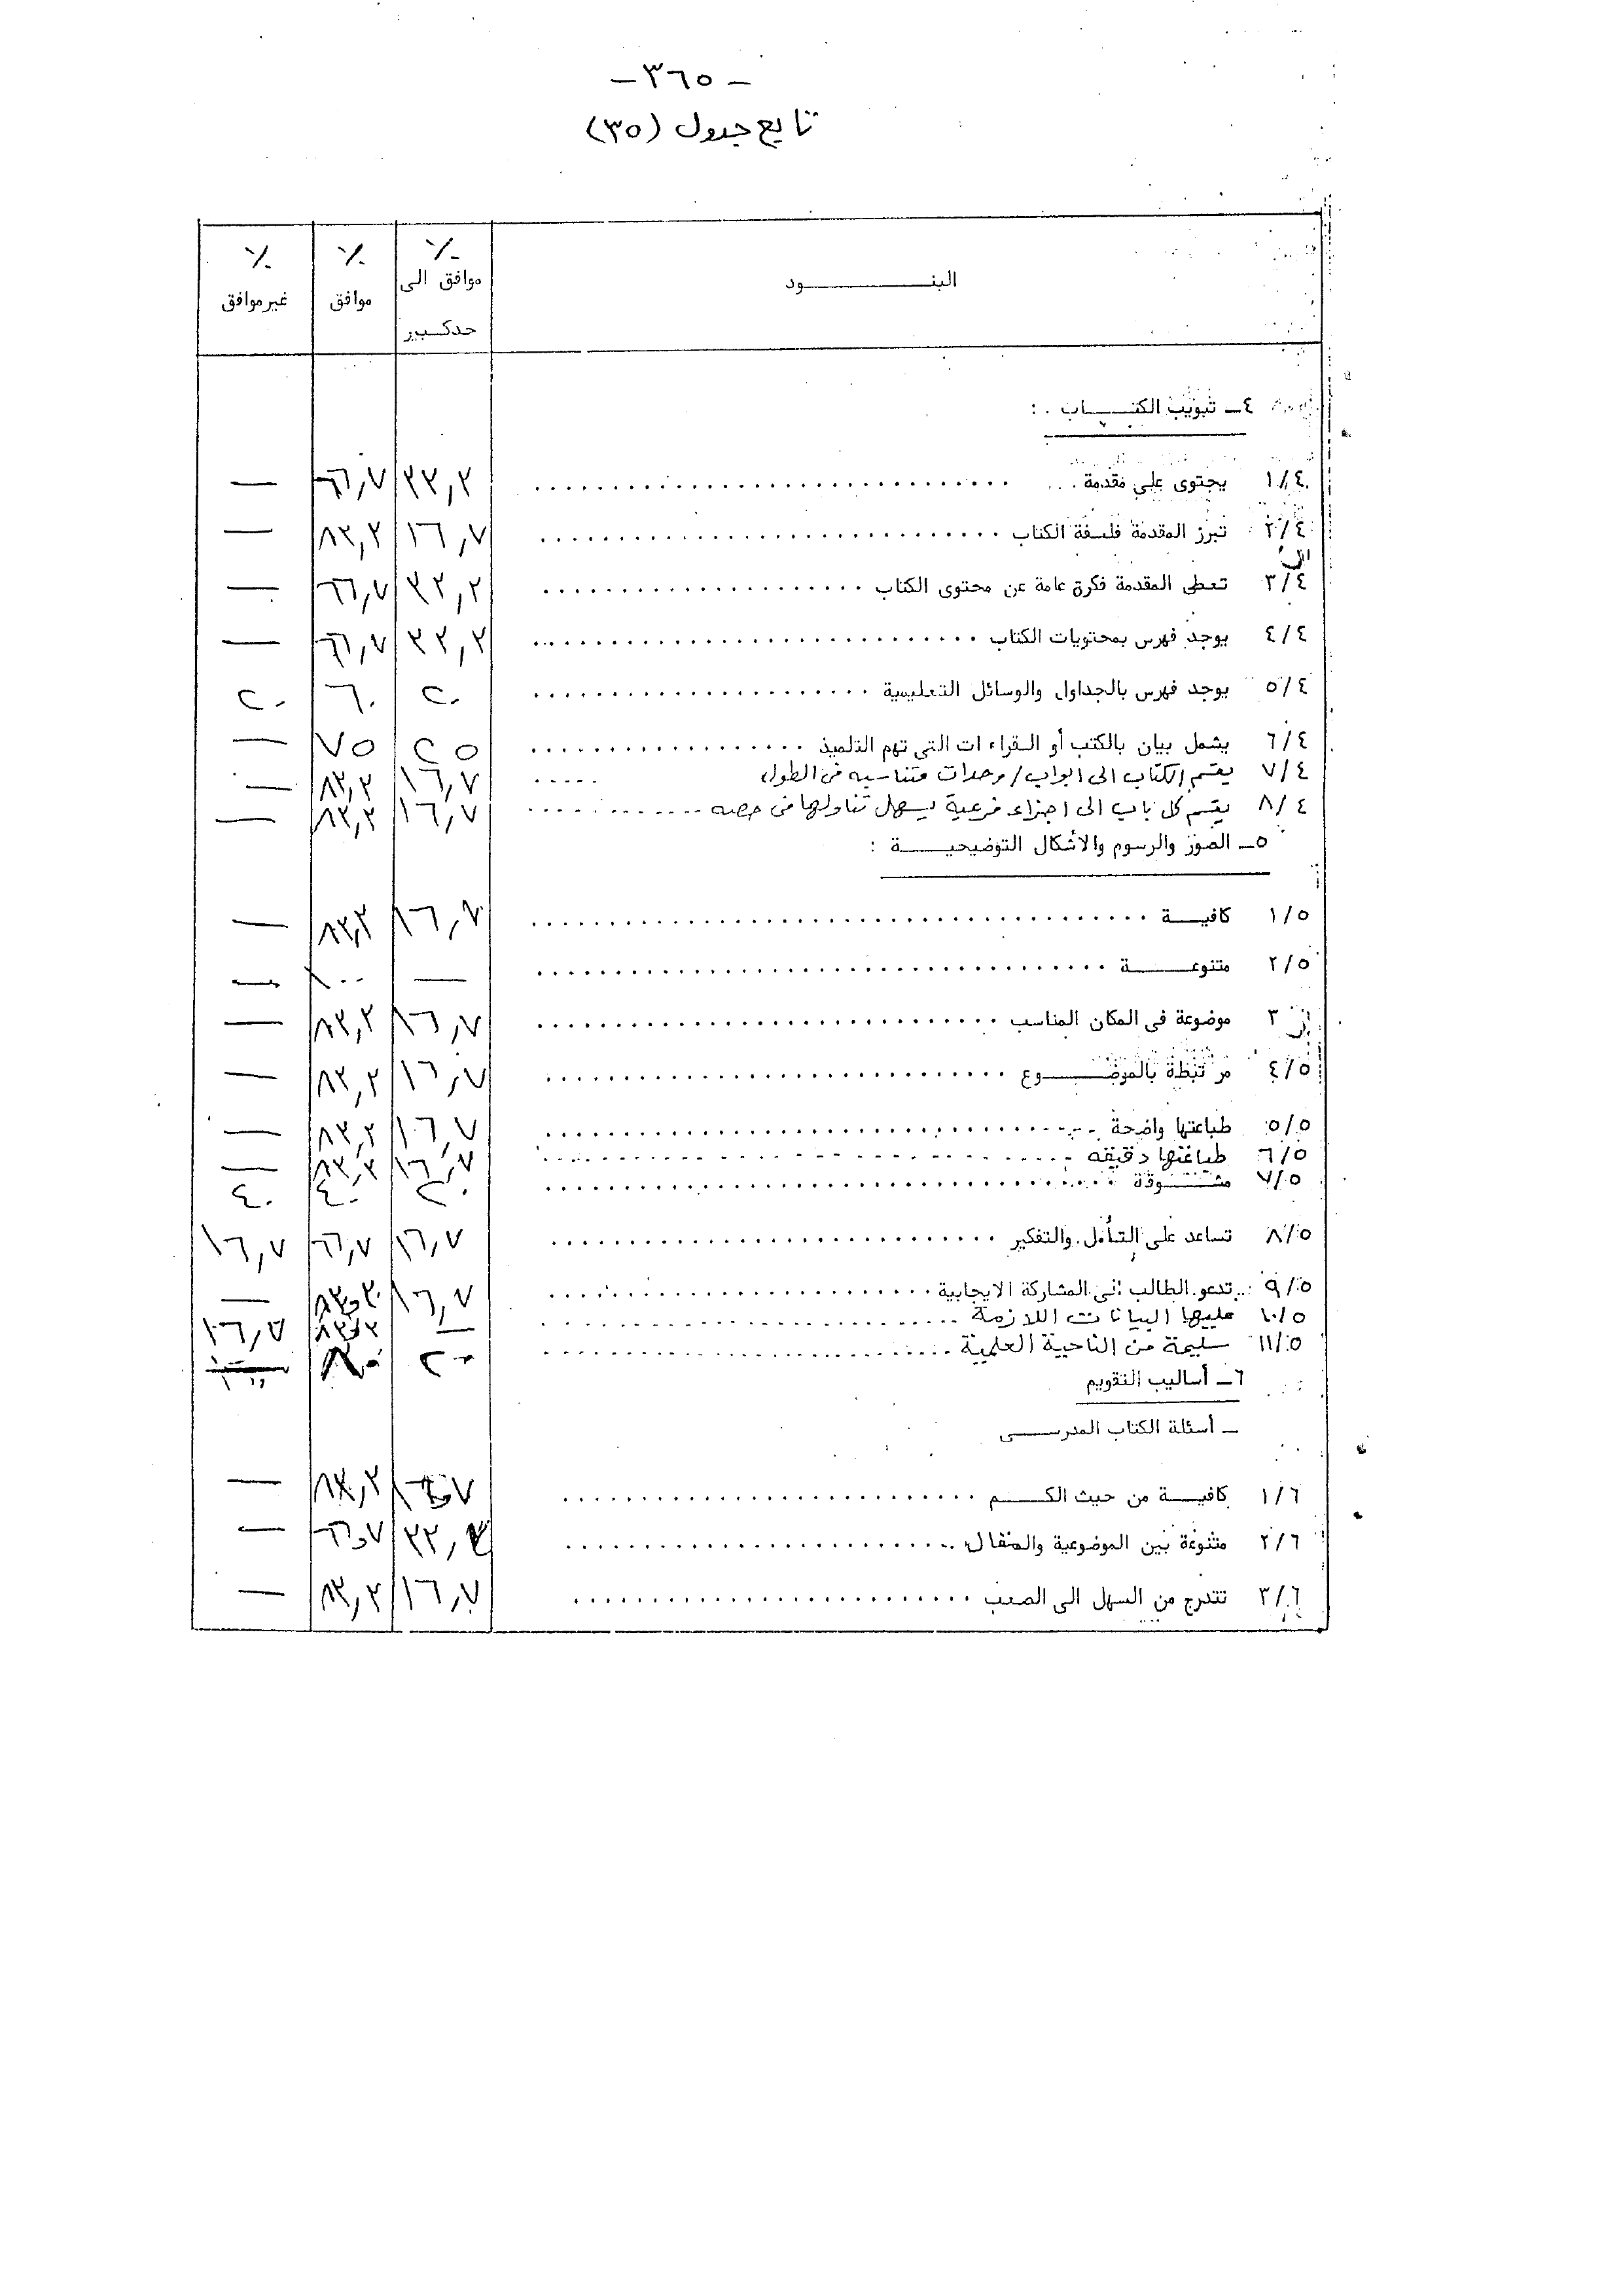 – ٣٦٥ –
تابع جدول (٣٥)
البنــــــود ٪ موافق الى حد كبير ٪ موافق ٪ غير موافق
٤ــ تبويب الكتــــاب :
١/٤ يحتوى على مقدمة ٣٣,٣ ٦٦,٧ —
٢/٤ تبرز المقدمة فلسفة الكتاب ١٦,٧ ٨٣,٣ —
٣/٤ تعطى المقدمة فكرة عامة عن محتوى الكتاب ٣٣,٣ ٦٦,٧ —
٤/٤ يوجد فهرس بمحتويات الكتاب ٣٣,٣ ٦٦,٧ —
٥/٤ يوجد فهرس بالجداول والوسائل التعليمية ٢٠ ٦٠ ٢٠
٦/٤ يشمل بيان بالكتب أو القراءات التى تهم التلميذ ٢٥ ٧٥ —
٧/٤ يقسم الكتاب الى ابواب/ وحدات متناسبه فى الطول ١٦,٧ ٨٣,٣ —
٨/٤ يقسم كل باب الى اجزاء فرعية يسهل تناولها فى حصه ١٦,٧ ٨٣,٣ —
٥ــ الصور والرسوم والأشكال التوضيحيــــة :
١/٥ كافيــة ١٦,٧ ٨٣,٣ —
٢/٥ متنوعــــة — ١٠٠ —
٣ موضوعة فى المكان المناسب ١٦,٧ ٨٣,٣ —
٤/٥ مرتبطة بالموضــــوع ١٦,٧ ٨٣,٣ —
٥/٥ طباعتها واضحة ١٦,٧ ٨٣,٣ —
٦/٥ طباعتها دقيقه ١٦,٧ ٨٣,٣ —
٧/٥ مشــــوقة ٢٠ ٤٠ ٤٠
٨/٥ تساعد على التأمل والتفكير ١٦,٧ ٦٦,٧ ١٦,٧
٩/٥ تدعو الطالب الى المشاركة الايجابية ١٦,٧ ٨٣,٣ —
١٠/٥ عليها البيانات اللازمة — ٨٣,٣ ١٦,٧
١١/٥ سليمة من الناحية العلمية ٢٠
٦ــ أساليب التقويم
ــ أسئلة الكتاب المدرســــى
١/٦ كافيــة من حيث الكــــم ١٦,٧ ٨٣,٣ —
٢/٦ متنوعة بين الموضوعية والمقال ٣٣,٣ ٦٦,٧ —
٣/٦ تتدرج من السهل الى الصعب ١٦,٧ ٨٣,٣ —